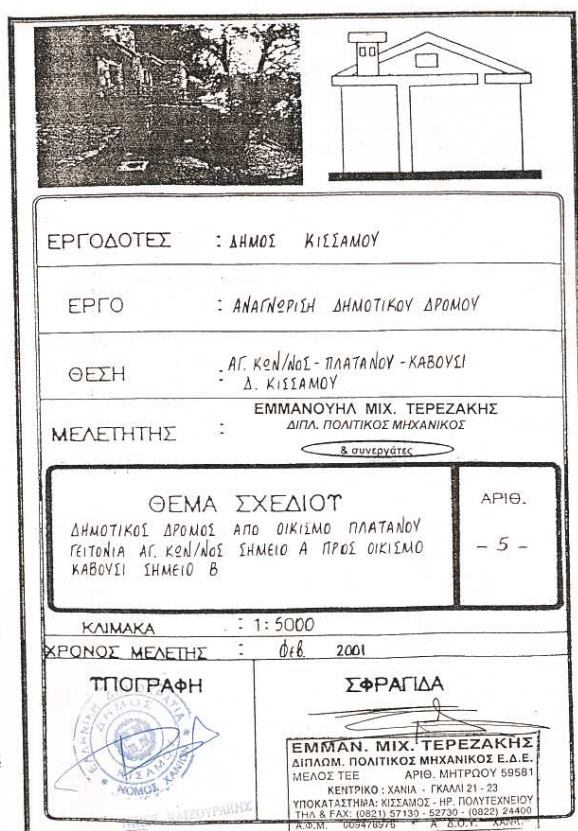 ΕΡΓΟΔΟΤΕΣ : ΔΗΜΟΣ ΚΙΣΣΑΜΟΥ
ΕΡΓΟ : ΑΝΑΓΝΩΡΙΣΗ ΔΗΜΟΤΙΚΟΥ ΔΡΟΜΟΥ
ΘΕΣΗ : ΑΓ. ΚΩΝ/ΝΟΣ - ΠΛΑΤΑΝΟΥ - ΚΑΒΟΥΣΙ
Δ. ΚΙΣΣΑΜΟΥ
ΜΕΛΕΤΗΤΗΣ :
ΕΜΜΑΝΟΥΗΛ ΜΙΧ. ΤΕΡΕΖΑΚΗΣ
ΔΙΠΛ. ΠΟΛΙΤΙΚΟΣ ΜΗΧΑΝΙΚΟΣ
& συνεργάτες
ΘΕΜΑ ΣΧΕΔΙΟΥ
ΔΗΜΟΤΙΚΟΣ ΔΡΟΜΟΣ ΑΠΟ ΟΙΚΙΣΜΟ ΠΛΑΤΑΝΟΥ
ΓΕΙΤΟΝΙΑ ΑΓ. ΚΩΝ/ΝΟΣ ΣΗΜΕΙΟ Α ΠΡΟΣ ΟΙΚΙΣΜΟ
ΚΑΒΟΥΣΙ ΣΗΜΕΙΟ Β
ΑΡΙΘ.
- 5 -
ΚΛΙΜΑΚΑ : 1:5000
ΧΡΟΝΟΣ ΜΕΛΕΤΗΣ : Φεβ. 2001
ΥΠΟΓΡΑΦΗ
ΕΛΛΗΝΙΚΗ ΔΗΜΟΚΡΑΤΙΑ
ΔΗΜΟΣ
ΚΙΣΑΜΟΥ
ΝΟΜΟΣ ΧΑΝΙΩΝ
ΣΦΡΑΓΙΔΑ
ΕΜΜΑΝ. ΜΙΧ. ΤΕΡΕΖΑΚΗΣ
ΔΙΠΛΩΜ. ΠΟΛΙΤΙΚΟΣ ΜΗΧΑΝΙΚΟΣ Ε.Δ.Ε.
ΜΕΛΟΣ ΤΕΕ ΑΡΙΘ. ΜΗΤΡΩΟΥ 59581
ΚΕΝΤΡΙΚΟ : ΧΑΝΙΑ - ΓΚΑΛΛΙ 21 - 23
ΥΠΟΚΑΤΑΣΤΗΜΑ: ΚΙΣΣΑΜΟΣ - ΗΡ. ΠΟΛΥΤΕΧΝΕΙΟΥ
ΤΗΛ & FAX: (0821) 57130 - 52730 - (0822) 24400
Α.Φ.Μ. 009478978 Α Δ.Ο.Υ. ΧΑΝΙΩΝ